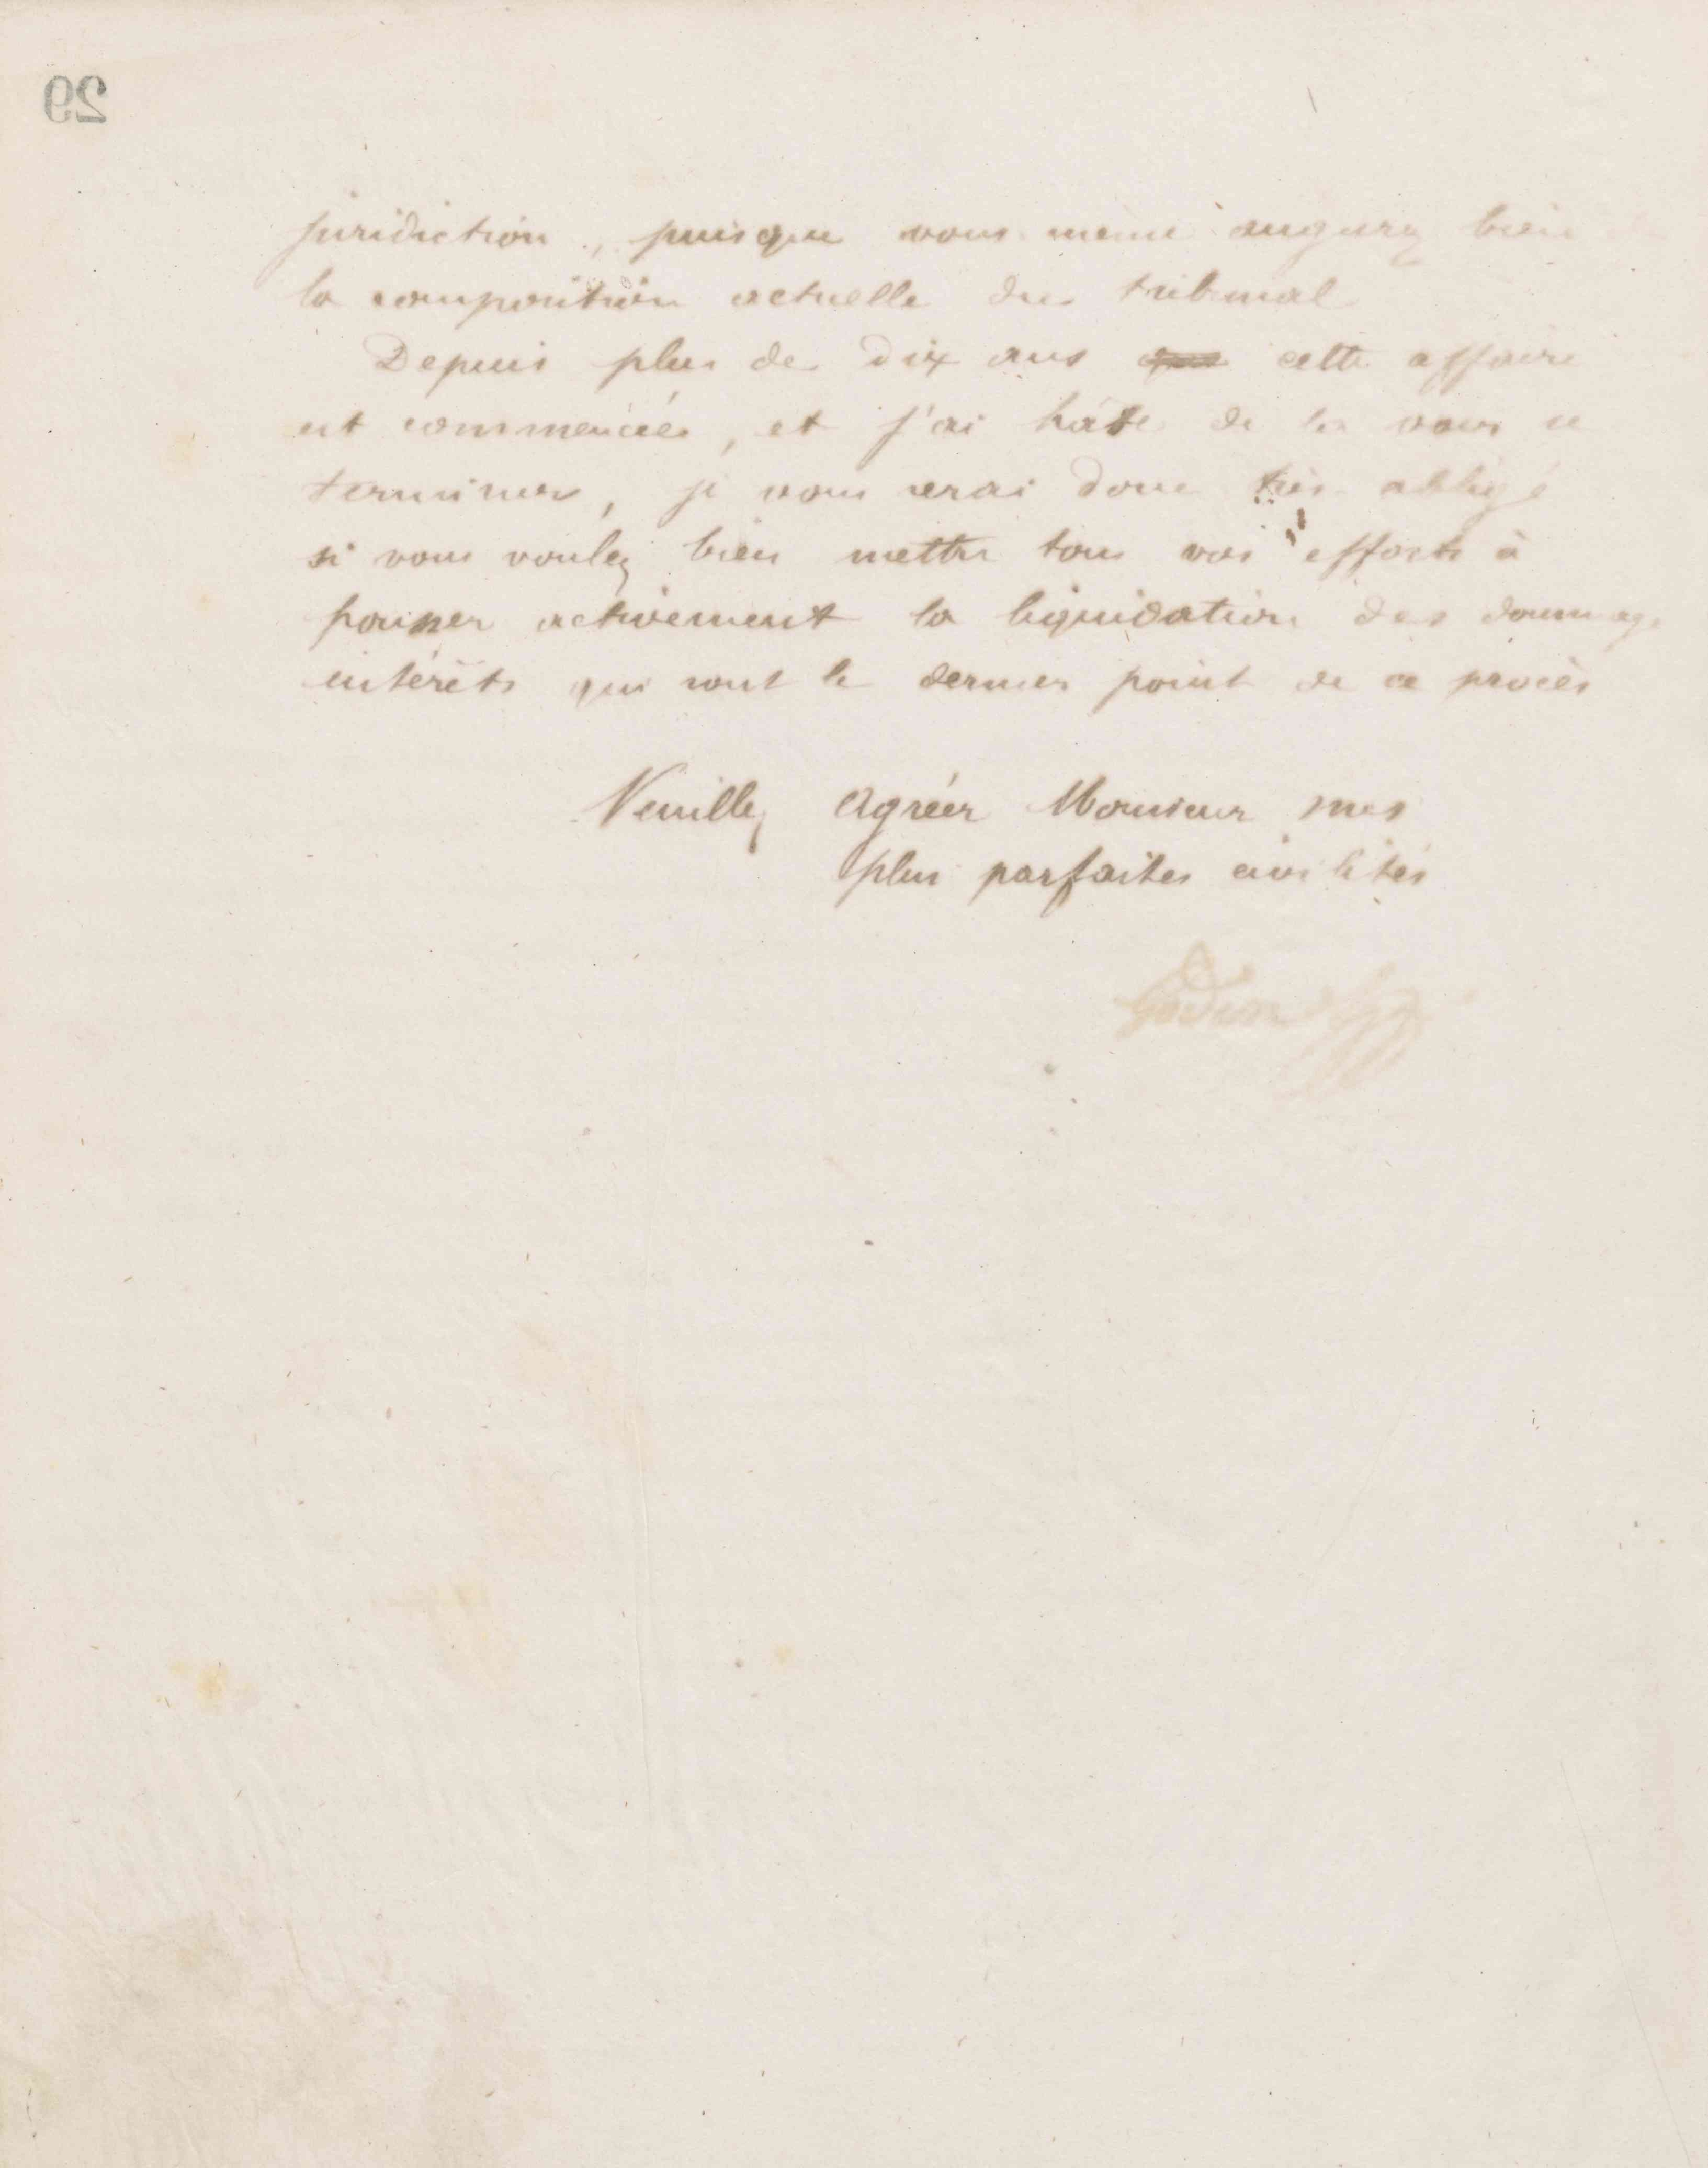 29
juridiction, puisque vous même augurez bien de
la composition actuelle du tribunal
Depuis plus de dix ans que cette affaire
est commencée, et j'ai hâte de la voir se
terminer, je vous serai donc très obligé
si vous voulez bien mettre tous vos efforts à
pousser activement la liquidation des dommages
intérêts qui sont le dernier point de ce procès
Veuillez Agréer Monsieur mes
plus parfaites civilités
Godin